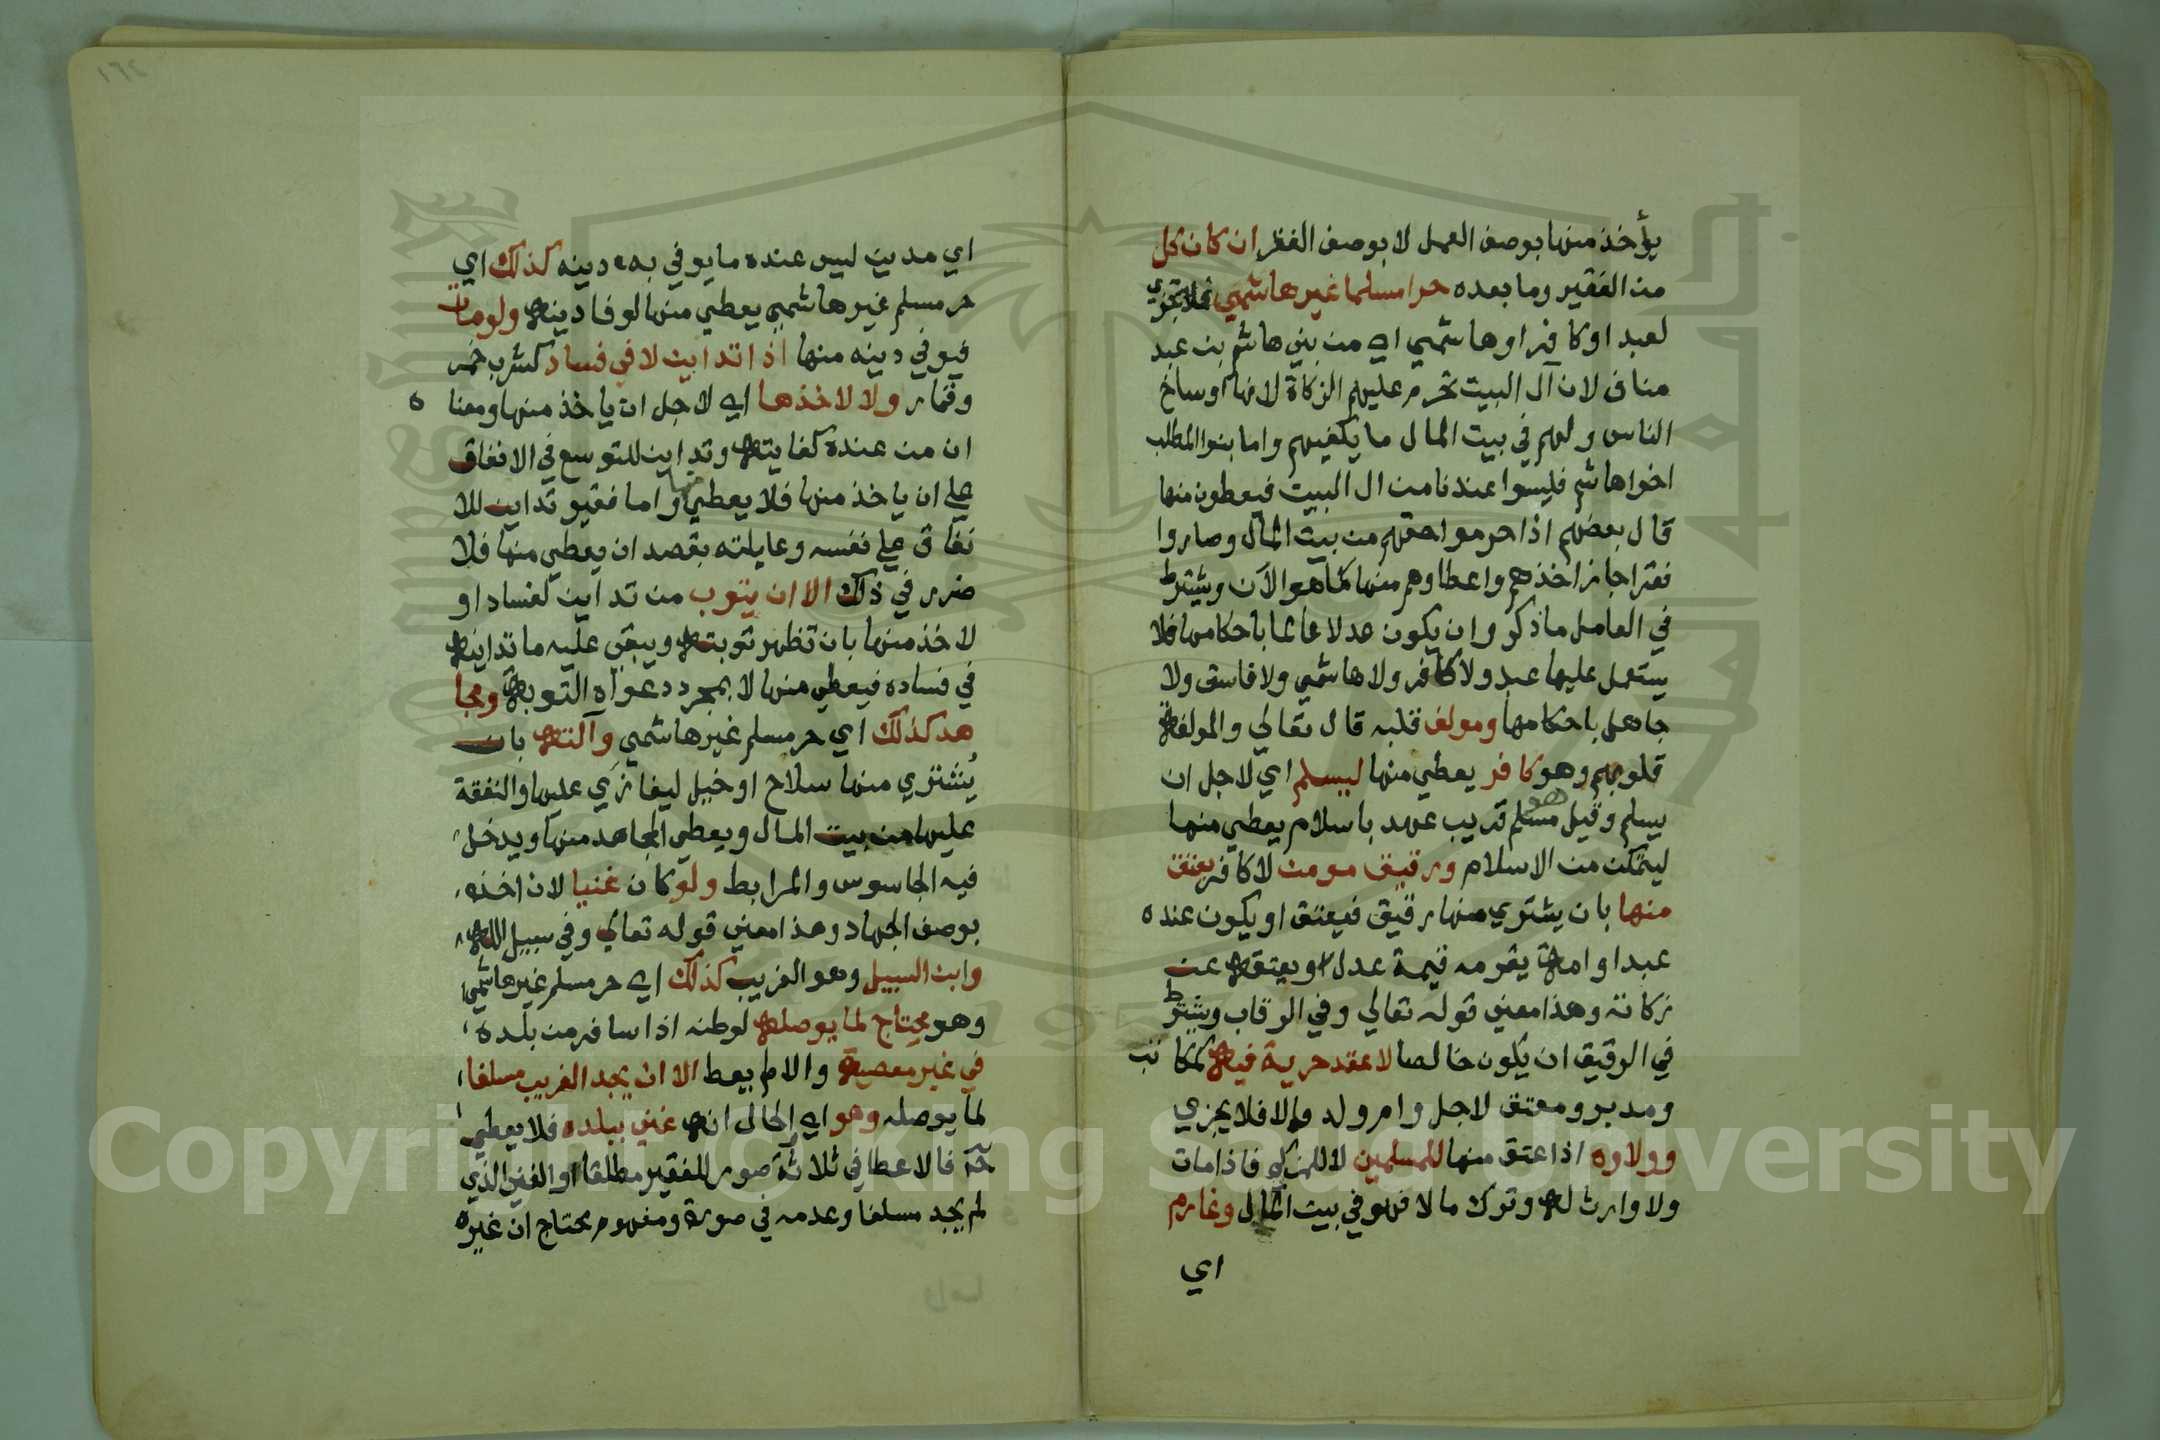 يؤخذ منها بوصف العمل لا بوصف الفقر ان كان كل
من الفقير وما بعده حرا مسلما غير هاشمي فلا تجزي
لعبد او كافر او هاشمي اي من بني هاشم بن عبد
مناف لان آل البيت تحرم عليهم الزكاة لانها اوساخ
الناس ولهم في بيت المال ما يكفيهم واما بنوا المطلب
اخوا هاشم فليسوا عندنا من ال البيت فيعطون منها
قال بعضهم اذا حرموا حقهم من بيت المال وصاروا
فقرا جاز اخذهم واعطاوهم منها كما هو الآن ويشترط
في العامل ما ذكر وان يكون عدلا عالما باحكامها فلا
يستعمل عليها عبد ولا كافر ولا هاشمي ولا فاسق ولا
جاهل باحكامها ومولف قلبه قال تعالي والمولفة
قلوبهم وهو كافر يعطي منها ليسلم اي لاجل ان
يسلم وقيل هو مسلم قريب عهد باسلام يعطي منها
ليتمكن من الاسلام ورقيق مومن لا كافر يعتق
منها بان يشتري منها رقيق فيعتق او يكون عنده
عبد او امة يقومه قيمة عدل ويعتقه عن
زكاته وهذا معني قوله تعالي وفي الرقاب ويشترط
في الرقيق ان يكون خالصا لا عقد حرية فيه كمكاتب
ومدبر ومعتق لاجل وام ولد والا فلا يجزي
وولاوه اذا عتق منها للمسلمين لا للمزكي فاذا مات
ولا وارث له وترك مالا فهو في بيت المال وغارم
اي
١٦٤
اي مدين ليس عنده ما يوفي به دينه كذلك اي
حر مسلم غير هاشمي يعطي منها لوفا دينه ولو مات
فيوفي دينه منها اذا تداين لا في فساد كشرب خمر
وقمار ولا لاخذها اي لاجل ان ياخذ منها ومعنا ه
ان من عنده كفايته وتداين للتوسع في الانفاق
علي ان ياخذ منها فلا يعطي منها واما فقير تداين للا
نفاق علي نفسه وعايلته بقصد ان يعطي منها فلا
ضرر في ذلك الا ان يتوب من تداين لفساد او
لاخذ منها بان تظهر توبته ويبقي عليه ما تداينه
في فساده فيعطي منها لا بمجرد دعواه التوبة ومجا
هد كذلك اي حر مسلم غير هاشمي وآلته بان
يُشتري منها سلاح او خيل ليغازي عليها والنفقة
عليها من بيت المال ويعطي المجاهد منها ويدخل
فيه الجاسوس والمرابط ولو كان غنيا لان اخذه
بوصف الجهاد وهذا معني قوله تعالي وفي سبيل الله
وابن السبيل وهو الغريب كذلك اي حر مسلم غير هاشمي
وهو محتاج لما يوصله لوطنه اذا سافر من بلده
في غير معصية والا لم يعط الا ان يجد الغريب مسلفا
لما يوصله وهو اي الحال انه غني ببلده فلا يعطي
ح فالاعطا في ثلاثة صور للفقير مطلقا او الغني الذي
لم يجد مسلفا وعدمه في صورة ومفهوم محتاج ان غيره
Copyright © King Saud University